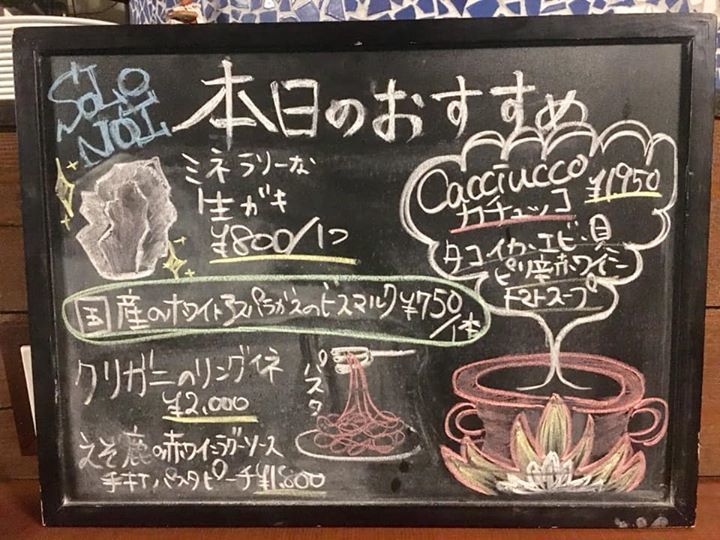 SOLO
NOI
本日のおすすめ
ミネラリーな
生ガキ
¥800/1つ
Cacciucco ¥1950
カチュッコ
タコ、イカ、エビ、貝
ピリ辛赤ワイン
トマトスープ
国産のホワイトアスパラガスのビスマルク ¥750/1本
クリガニのリングイネ
¥2,000
パスタ
えぞ鹿の赤ワインラグーソース
手打パスタ ピーチ ¥1,800